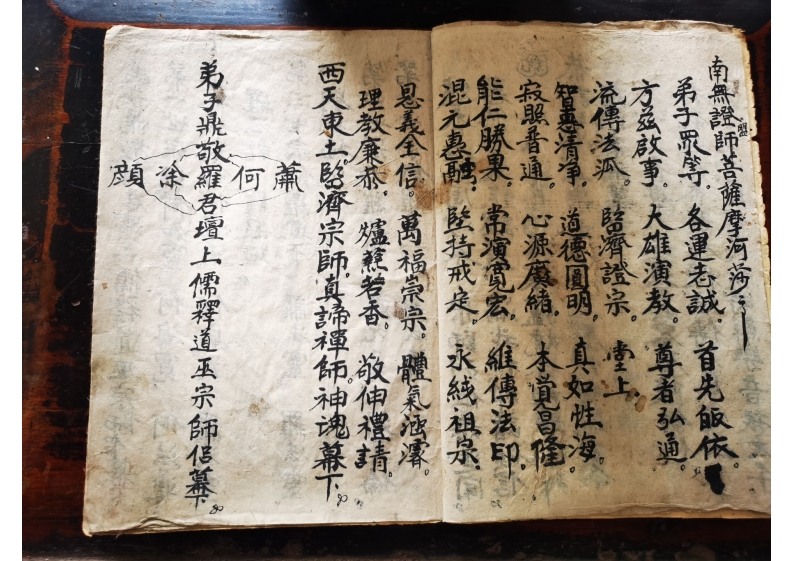 南無證師菩薩摩河薩
盟
弟子眾等。各運老誠。首先皈依。
方茲啟事。大雄演教。尊者弘通。
流傳法派。臨濟證宗。堂上。
智慧清净。道德圓明。真如性海。
寂照普通。心源廣緒。本覚昌隆。
能仁勝果。常演寬宏。維傳法印。
混元惠融。堅持戒定。永綫祖宗。
恩義全信。萬福崇宗。體氣涵濬。
理教廉恭。爐爇茗香。敬伸禮請。
西天東土臨濟宗師真諦禪師神魂幕下。
弟子鼎敬羅君壇上儒釋道巫宗師侶幕下
蕭何涂顔